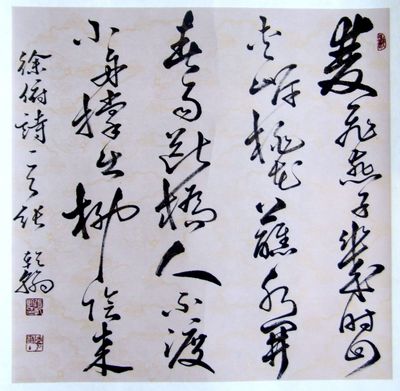 雙飛燕子幾时回
夾岸桃花蘸水開
春雨斷橋人不渡
小舟撑出柳陰来
徐俯詩一首 張